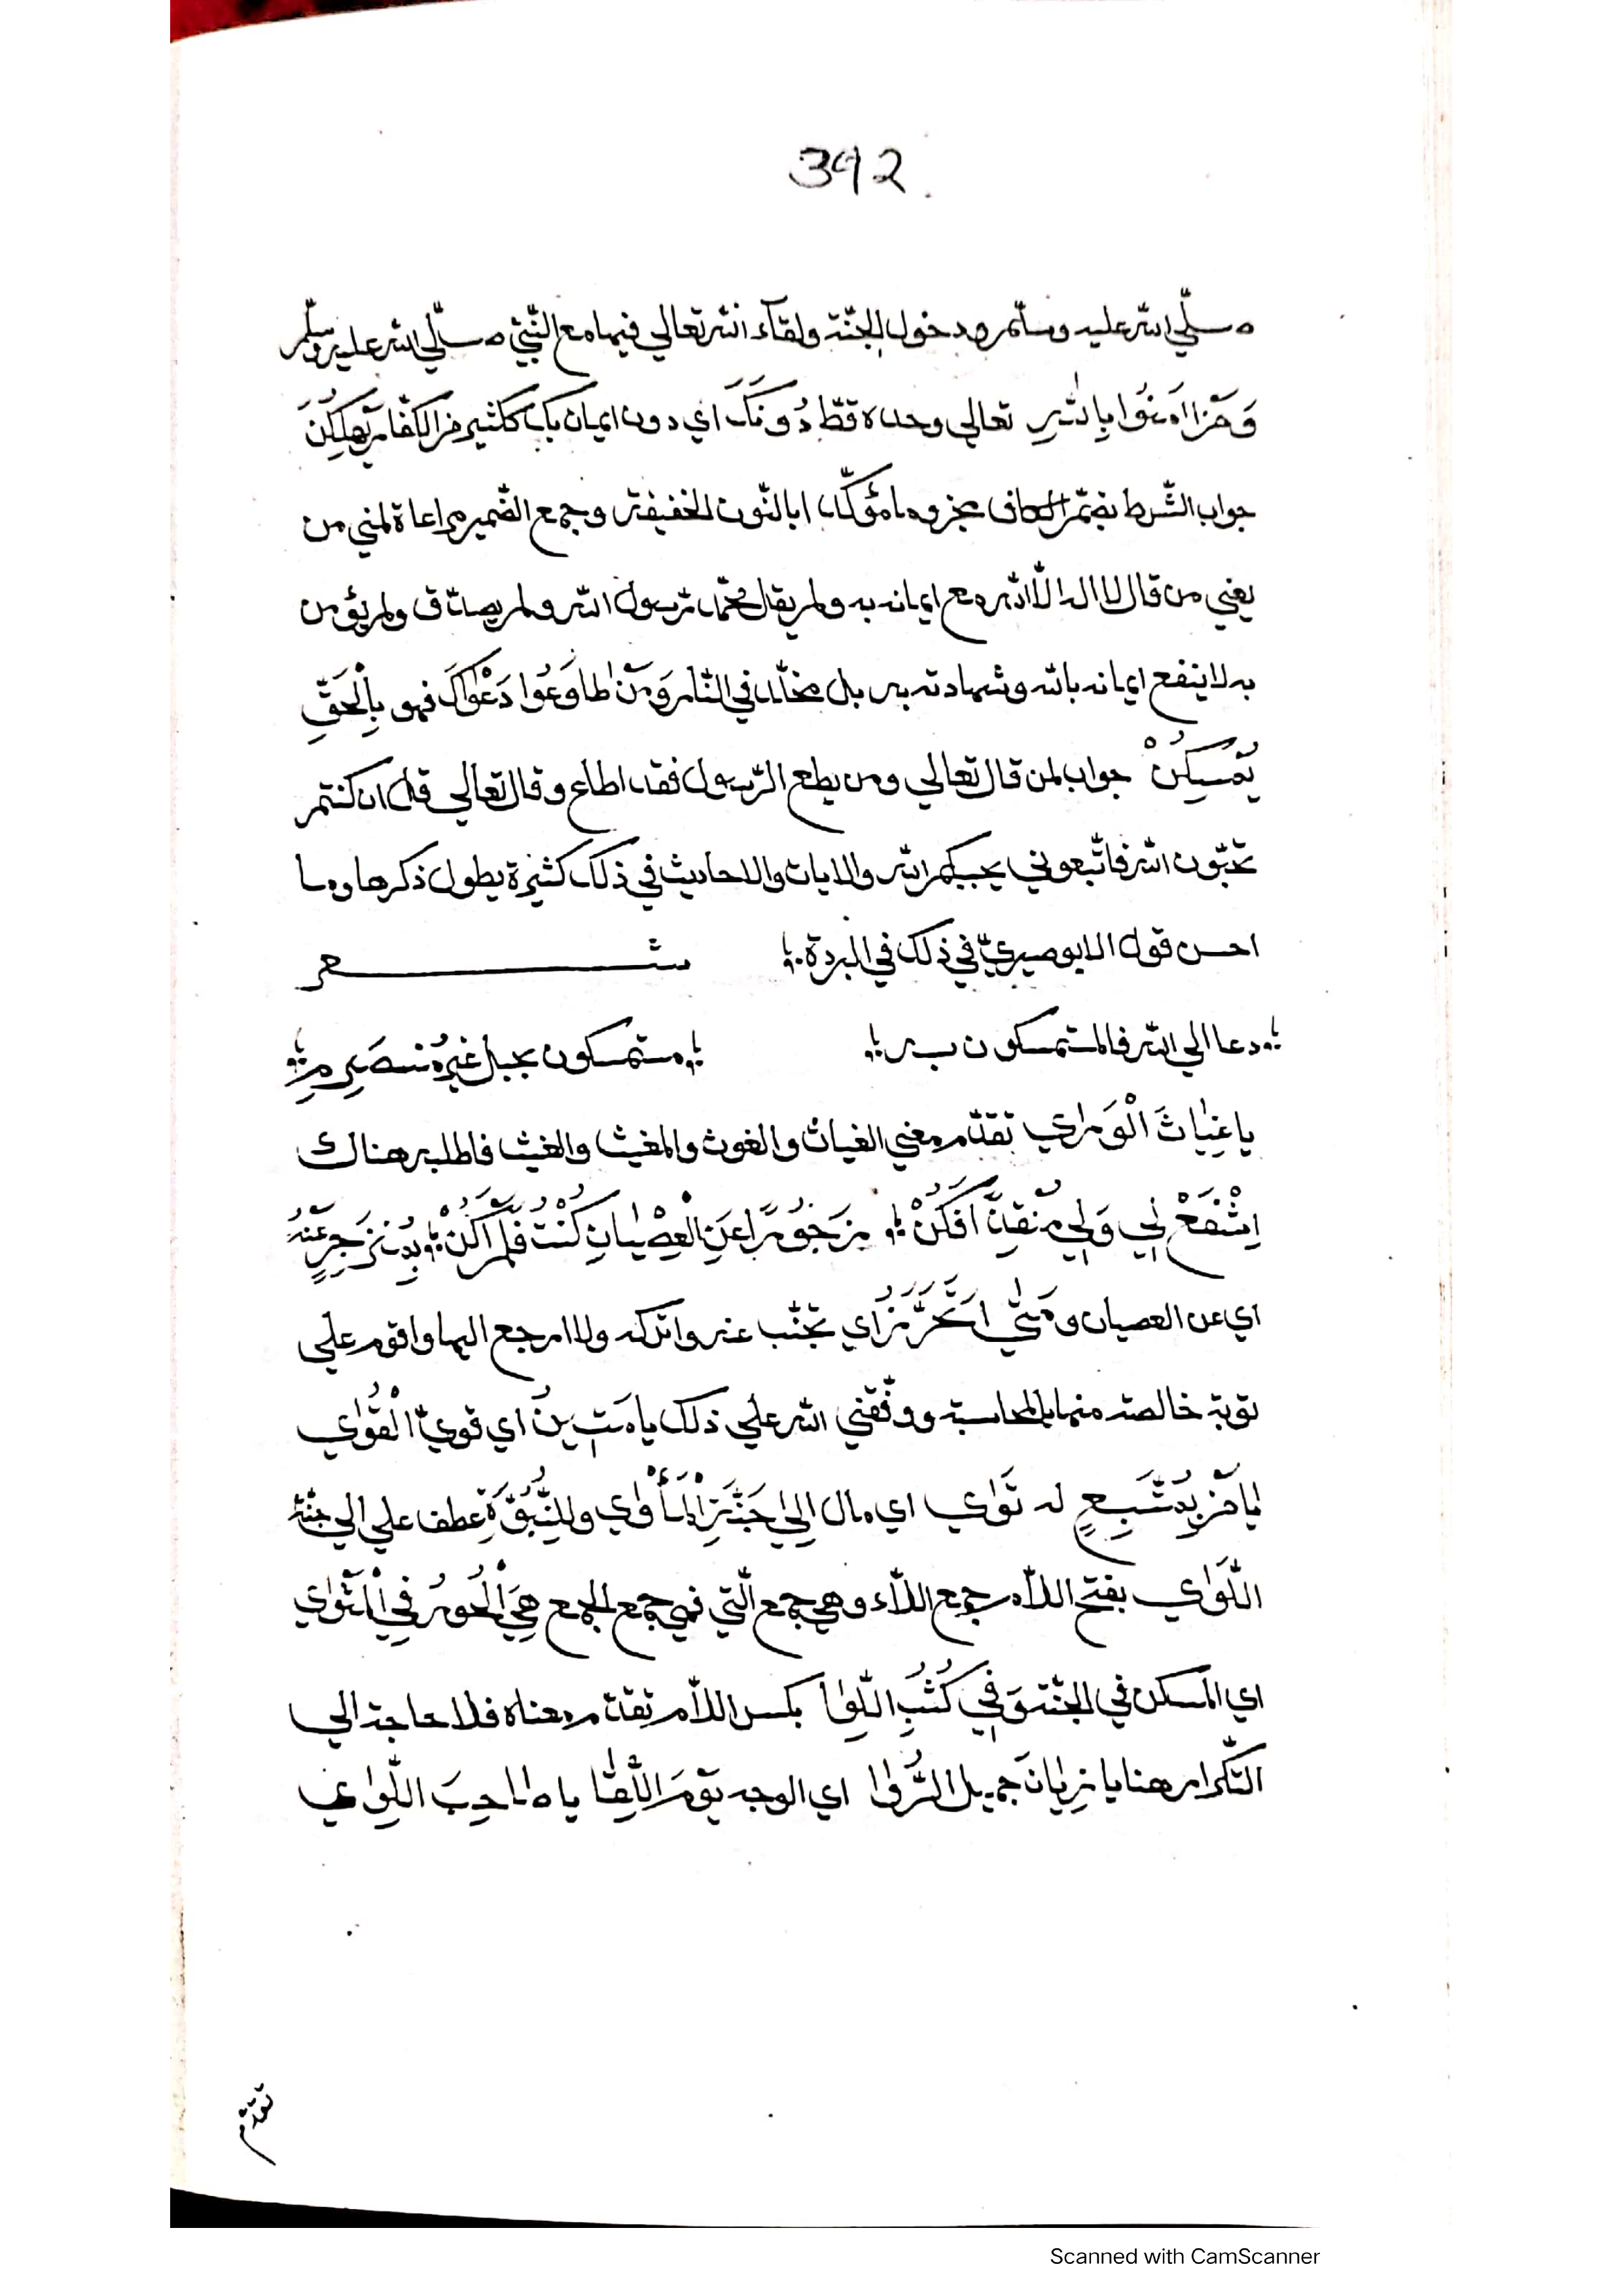 392
صلّي الله عليه وسلّم ودخول الجنّة ولقآء الله تعالي فيها مع النّبيّ صلّي الله عليه وسلّم
وَمَنْ اٰمَنُوا بِاللّٰهِ تعالي وحده فقطّ دُونَكَ اي دون ايمان بك كثير من الكفّار يَهْلِكُنَ
جواب الشّرط بضمّ الكاف مجزوما مؤكّدا بالنّون الخفيفة وجمع الضّمير مراعاة لمني من
يعني من قال لا اله الّا الله مع ايمانه به ولم يقل محمّد رّسول الله ولم يصدّق ولم يؤمن
به لا ينفع ايمانه بالله وشهادته به بل مخلّد في النّار وَمَنْ طٰاوَعُوا دَعْوٰاكَ فهو بِالْحَقِّ
يُمْسِكُنْ جواب لمن قال تعالي ومن يطع الرّسول فقد اطاع وقال تعالي قل ان كنتم
تحبّون الله فاتّبعوني يحببكم الله والايات والاحاديث في ذلك كثيرة يطول ذكرها وما
احسن قول الابوصيريّ في ذلك في البردة
شعر
دعا الي الله فالمستمسكون به مستمسكون بحبل غير مُنْصَرِمِ
يا غِيٰاثَ الْوَرٰي تقدّم معني الغياث والغوث والمغيث والغيث فاطلبه هناك
اِشْفَعْ لِي وَلِي مُنْقِذًا فَكُنْ مَزْجُورًا عَنِ الْعِصْيٰانِ كُنْتُ فَلَمْ اَكُنْ بِمُنْزَجِرٍ عَنْهُ
اي عن العصيان ومَتٰي اَتَحَرَّزُ اي تجنّب عنه واتركه ولا ارجع اليها واقوم علي
توبة خالصة منها بالمحاسبة ووفّقني الله علي ذلك يا مَتِينُ اي قويّ الْقُوٰي
لِمَنْ بِهِ شَبِعٍ له تَوٰي اي مال اِلٰي جَنَّةِ الْمَأْوٰي وللنُّبُوَّةِ عطف علي الي جنّة
اللَّوٰي بفتح اللاّم جمع اللاّء وهي جمع الّتي فهي جمع الجمع هِيَ الْحُورُ فِي الْمَثْوٰي
اي المسكن في الجنّة وَفِي كُثُبِ اللِّوٰا بكسر اللاّم تقدّم معناه فلا حاجة الي
التّكرار هنا يا زِيٰانَ جميل الرُّوٰا اي الوجه يَوْمَ اللِّقٰا يا صٰاحِبَ اللِّوٰاي
تقدّم
Scanned with CamScanner